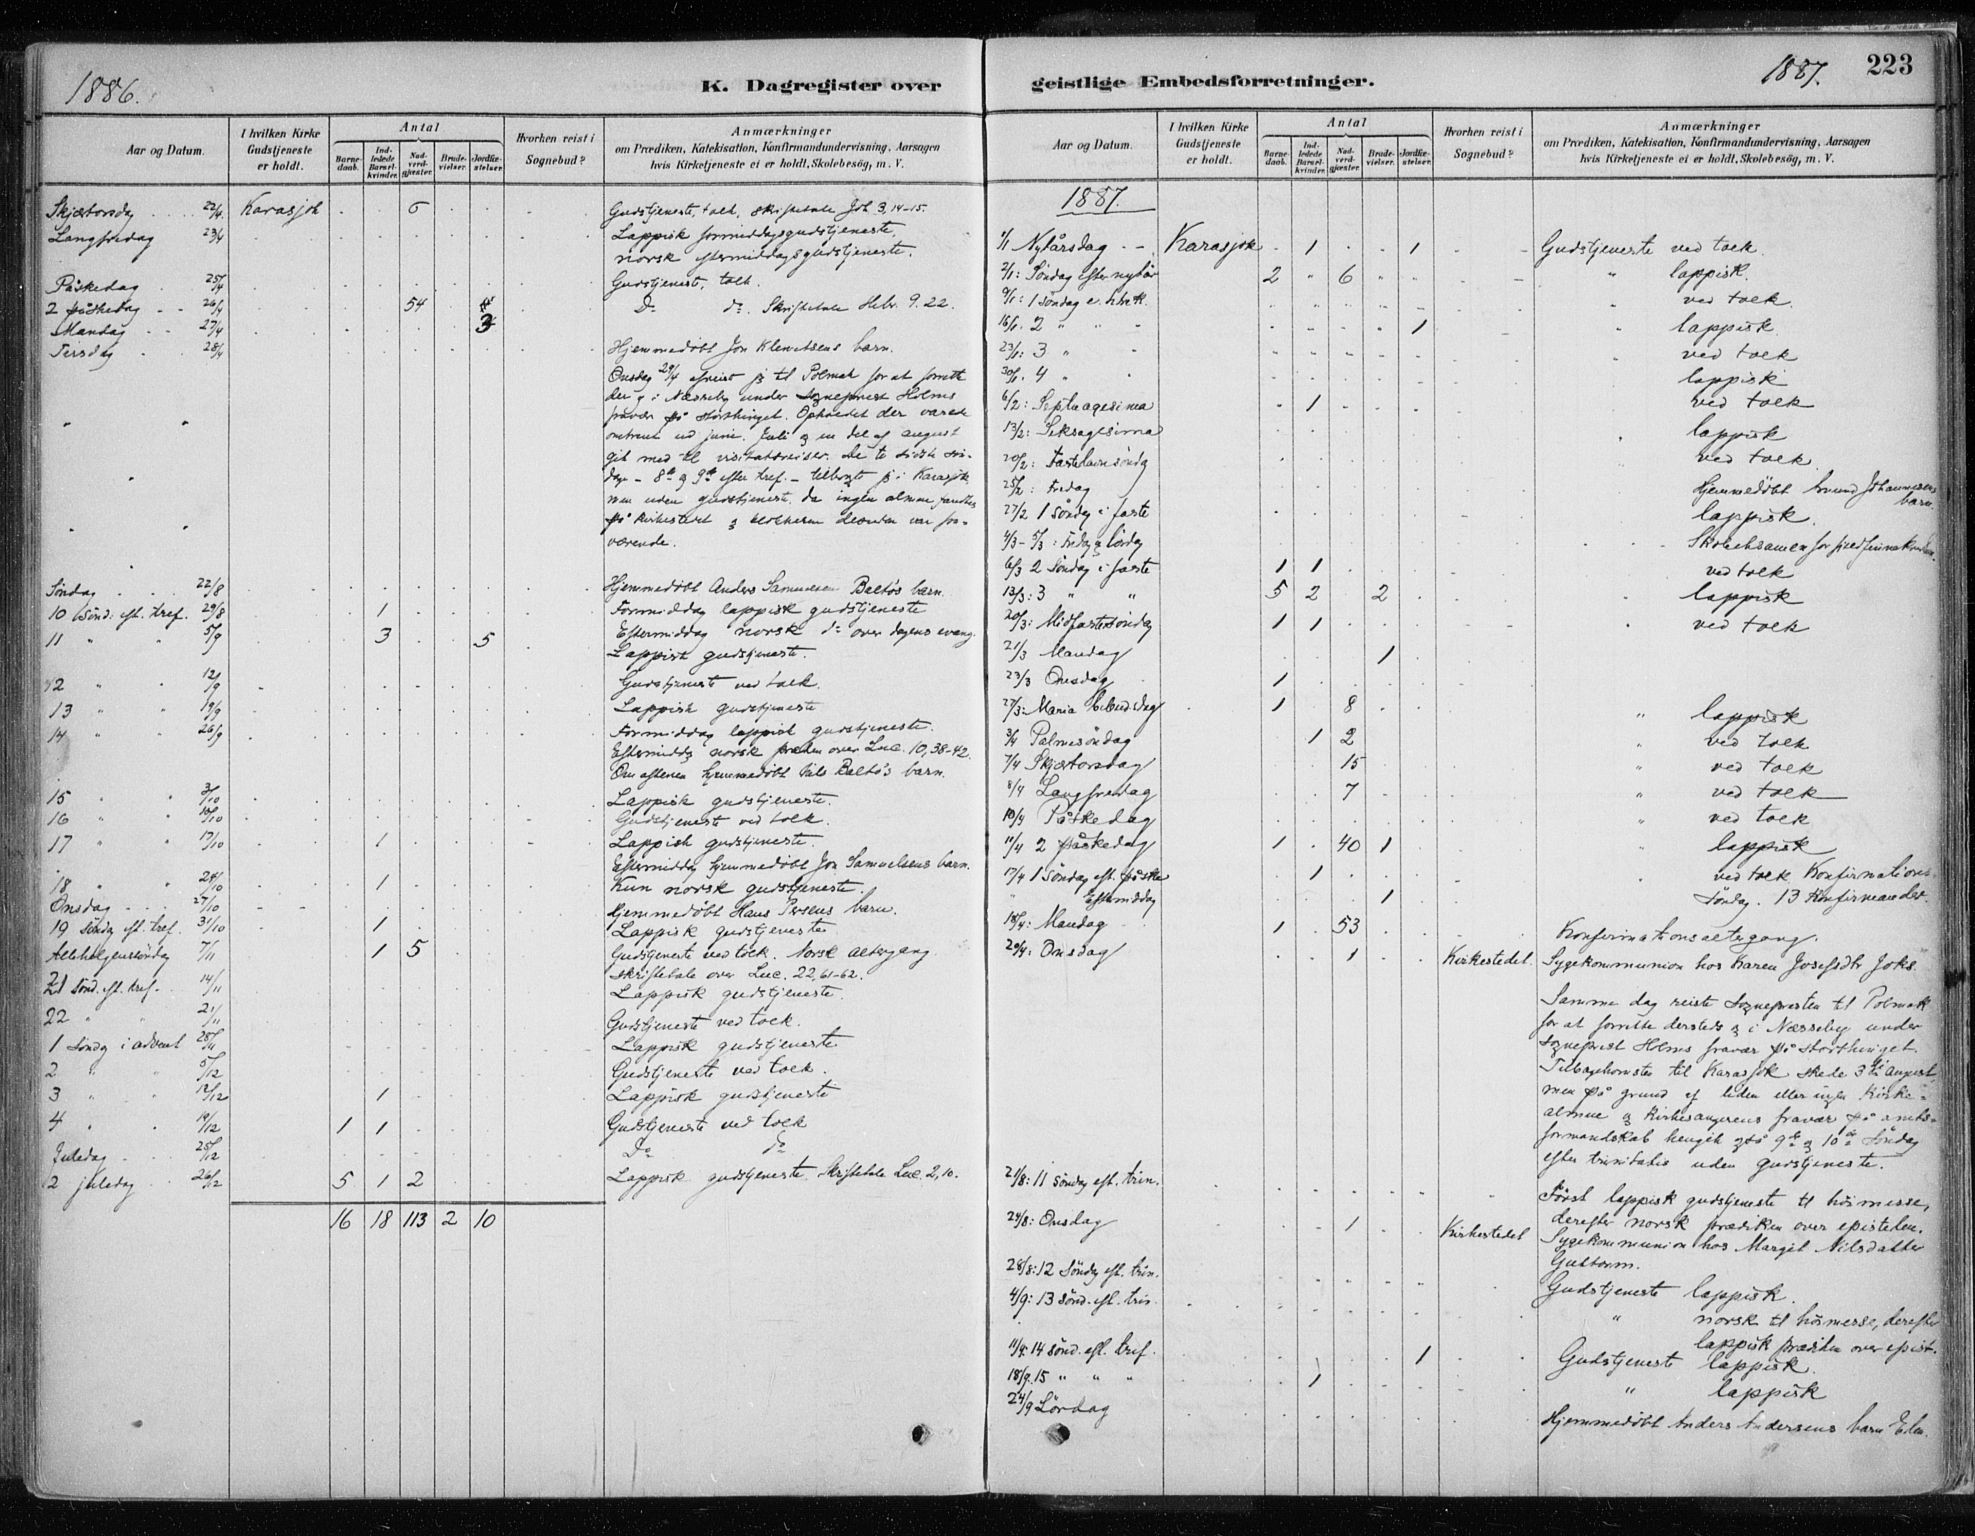 1886.
K. Dagregister over
Aar og Datum.
I hvilken Kirke Gudstjeneste er holdt.
Antal
Barne-daab.
Ind-ledede Barsel-kvinder.
Nad-verd-gjæster.
Brude-vielser.
Jordfæ-stelser.
Hvorhen reist i Sognebud?
Anmærkninger
om Prædiken, Katekisation, Konfirmandundervisning, Aarsagen
hvis Kirketjeneste ei er holdt, Skolebesøg, m. V.
Skjærtorsdag 22/4 Karasjok 6 Gudstjeneste, tolk, skriftetale Joh 3, 14-15.
Langfredag 23/4 Lappisk formiddagsgudstjeneste,
norsk eftermiddagsgudstjeneste.
Påskedag 25/4 Gudstjeneste, tolk.
2 påskedag 26/4 54 Do do. Skriftetale Hebr. 9.22.
Mandag 27/4 3
Tirsdag 28/4 Hjemmedøbt Jon Klemetsens barn.
Onsdag 29/4 afreist jeg til Polmak for at forrette
der og i Næsseby under Sogneprest Holms
fravær på Storthinget. Opholdet der varede
omtrent ud juni. Juli og en del af august
gik med til visitatsreiser. De to sidste søn-
dage - 8de og 9de efter tref. - tilbragte jeg i Karasjok
men uden gudstjeneste, da ingen almue fandtes
på kirkestedet og klokkeren desuden var fra-
værende.
Søndag 22/8 Hjemmedøbt Anders Samuelsen Baltos barn
10 Sönd. eft. tref. 29/8 1 Formiddag lappisk gudstjeneste
11 " " 5/9 3 5 Eftermiddag norsk do over dagens evang.
Lappisk gudstjeneste.
12 " " 12/9 Gudstjeneste ved tolk.
13 " " 19/9 Lappisk gudstjeneste
14 " " 26/9 Formiddag lappisk gudstjeneste.
Eftermiddag norsk præken over Luc. 10,38-42.
Om aftenen hjemmedøbt Nils Baltos barn.
15 " " 3/10 Lappisk gudstjeneste.
16 " " 10/10 Gudstjeneste ved tolk.
17 " " 17/10 1 Lappisk gudstjeneste.
Eftermiddag hjemmedøbt Jon Samuelsens barn.
18 " " 24/10 1 Kun norsk gudstjeneste.
Onsdag 27/10 Hjemmedøbt Hans Persens barn.
19 Söndag eft. tref. 31/10 1 Lappisk gudstjeneste
Allehelgenssöndag 7/11 1 5 Gudstjeneste ved tolk. Norsk altergang
skriftetale over Luc. 22,61-62.
21 sönd. eft. tref. 14/11 Lappisk gudstjeneste.
22 " " 21/11 Gudstjeneste ved tolk.
1 Söndag i advent 28/11 Lappisk gudstjeneste
2 " " 5/12 Gudstjeneste ved tolk.
3 " " 12/12 1 Lappisk gudstjeneste
4 " " 19/12 1 1 Gudstjeneste ved tolk
Juledag 25/12 Do do
2 juledag 26/12 5 1 2 Lappisk gudstjeneste. Skriftetale Luc. 2,10.
16 18 113 2 10
geistlige Embedsforretninger.
1887.
223
Aar og Datum.
I hvilken Kirke Gudstjeneste er holdt.
Antal
Barne-daab.
Ind-ledede Barsel-kvinder.
Nad-verd-gjæster.
Brude-vielser.
Jordfæ-stelser.
Hvorhen reist i Sognebud?
Anmærkninger
om Prædiken, Katekisation, Konfirmandundervisning, Aarsagen
hvis Kirketjeneste ei er holdt, Skolebesøg, m. V.
1887.
1/1 Nytårsdag Karasjok 1 1 Gudstjeneste ved tolk
2/1: Söndag efter nytår 2 " 6 " lappisk.
9/1: 1 söndag e. h. 3 k. " ved tolk.
16/1. 2 " " 1 " lappisk
23/1: 3 " " " ved tolk
30/1. 4 " " lappisk
6/2: Septuagesima 1 ved tolk
13/2: Seksagesima lappisk
20/2: Fastelavnsöndag ved tolk
25/2: Fredag Hjemmedøbt Johannesens barn.
27/2 1 Söndag i faste lappisk.
4/3 - 5/3: Fredag og Lördag Skoleeksamen for
6/3 2 Söndag i faste 1 1 ved tolk
13/3: 3 " " 5 2 2 lappisk
20/3: Midfastesöndag 1 1 ved tolk
21/3 Mandag 1
23/3 Onsdag 1
27/3: Maria bebud.dag 1 8 " lappisk
3/4 Palmesöndag 1 2 " ved tolk
7/4 Skjærtorsdag 15 " ved tolk
8/4 Langfredag 7 " ved tolk
10/4 Påskedag " ved tolk
11/4 2 påskedag 1 40 1 " lappisk
17/4 1 Söndag eft. påske 1 " ved tolk Konfirmations-
" Eftermiddag 1 söndag. 13 Konfirmander.
18/4: Mandag 1 53 Konfirmationsaltergang.
20/4: Onsdag 1 Kirkestedet. Sygekommunion hos Karen Josefsdtr Joks.
Samme dag reiste Sognepresten til Polmak
for at forrette dersteds og i Næsseby under
Sogneprest Holms fravær på Storthinget.
Tilbagekomsten til Karasjok skede 3die august,
men på grund af liden eller ingen Kirke-
almue og Kirkesangerens fravær på amts-
formandskab hengik også 9de og 10de Söndag
efter trinitatis uden gudstjeneste.
21/8: 11 söndag eft. trin. Först lappisk gudstjeneste til höimesse,
derefter norsk prædiken over epistelen.
24/8: Onsdag 1 Kirkestedet Sygekommunion hos Margit Nilsdatter
Guttorm.
28/8: 12 Söndag eft. trin. Gudstjeneste lappisk.
4/9: 13 sönd. eft. trin. " norsk til höimesse, derefter
lappisk præken over epist.
11/9: 14 sönd. eft. tref. 1 Gudstjeneste lappisk.
18/9. 15 " " " 1 " lappisk
24/9 Lördag Hjemmedøbt Anders Andersens barn Elen.